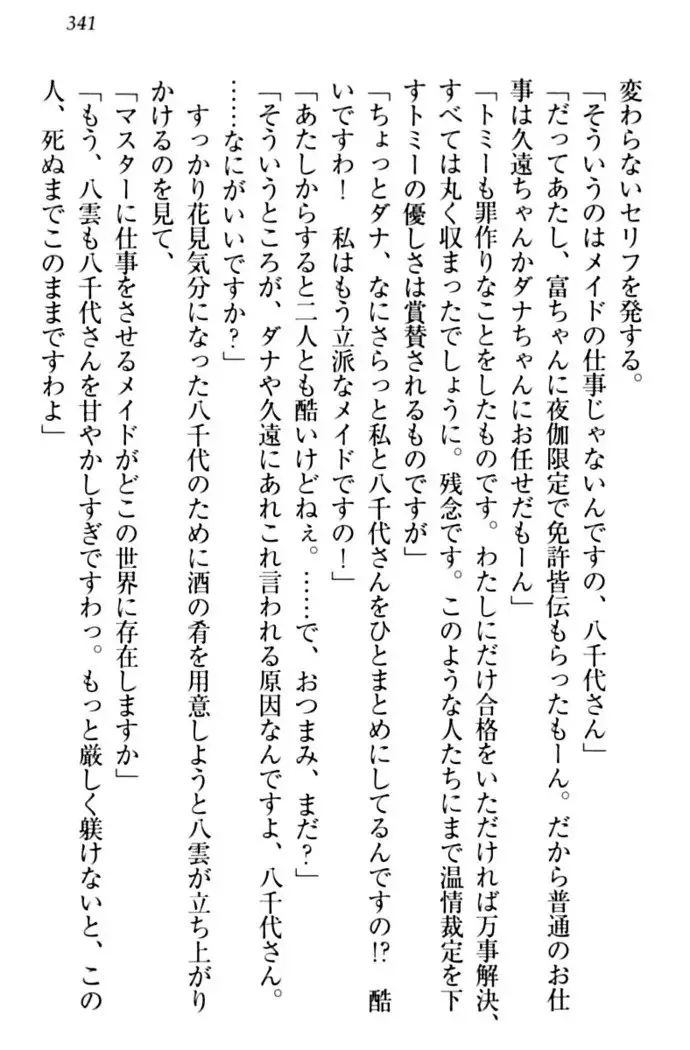 341
変わらないセリフを発する。
「そういうのはメイドの仕事じゃないんですの、八千代さん」
「だってあたし、富ちゃんに夜伽限定で免許皆伝もらったもーん。だから普通のお仕
事は久遠ちゃんかダナちゃんにお任せだもーん」
「トミーも罪作りなことをしたものです。わたしにだけ合格をいただければ万事解決、
すべては丸く収まったでしょうに。残念です。このような人たちにまで温情裁定を下
すトミーの優しさは賞賛されるものですが」
「ちょっとダナ、なにさらっと私と八千代さんをひとまとめにしてるんですの!?　酷
いですわ！　私はもう立派なメイドですの！」
「あたしからすると二人とも酷いけどねぇ。……で、おつまみ、まだ？」
「そういうところが、ダナや久遠にあれこれ言われる原因なんですよ、八千代さん。
……なにがいいですか？」
すっかり花見気分になった八千代のために酒の肴を用意しようと八雲が立ち上がり
かけるのを見て、
「マスターに仕事をさせるメイドがどこの世界に存在しますか」
「もう、八雲も八千代さんを甘やかしすぎですわっ。もっと厳しく躾けないと、この
人、死ぬまでこのままですわよ」